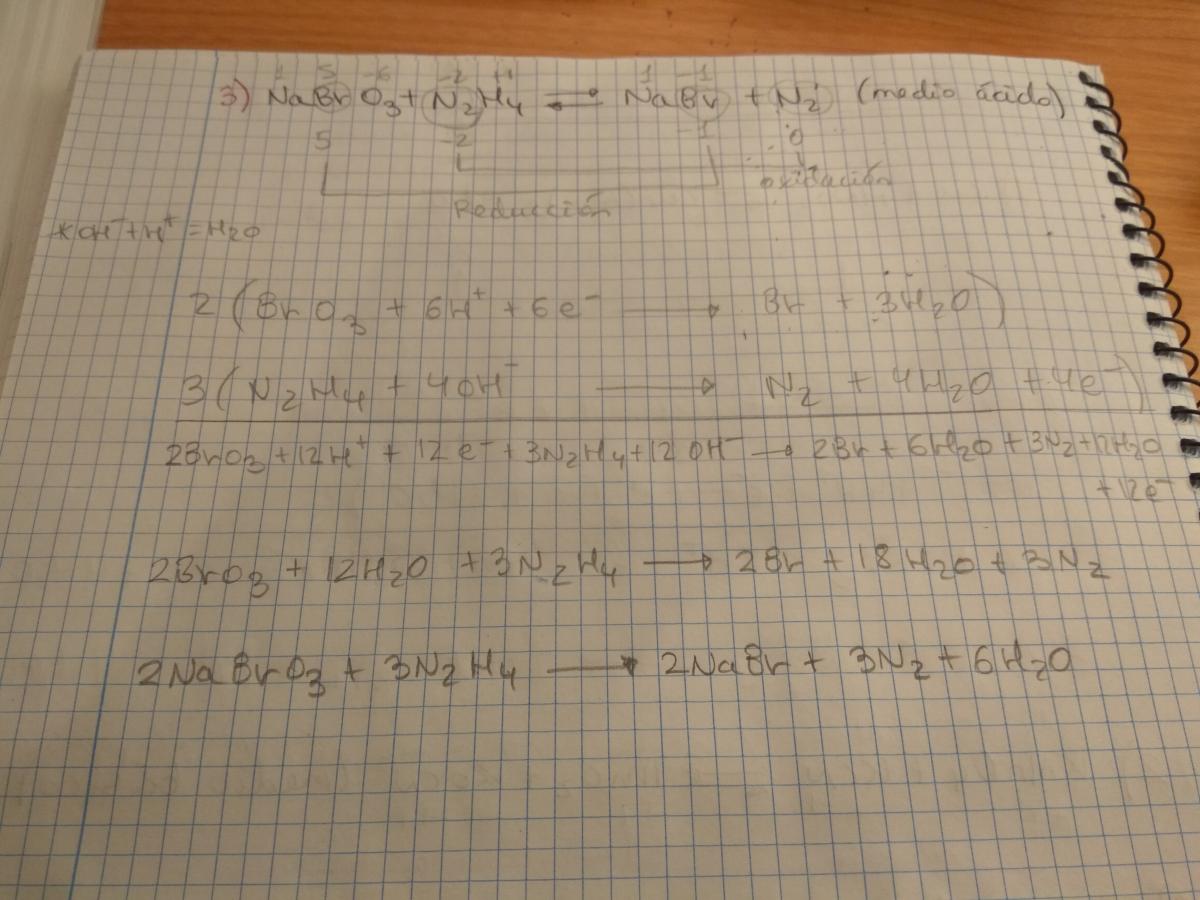 1 5 -6 -2 +1 1 -1
3) NaBrO3 + N2H4 ⇌ NaBr + N2 (medio ácido)
5 -2 -1 0
oxidación
Reducción
*OH⁻ + H⁺ = H2O
2 (BrO3 + 6H⁺ + 6e⁻ → Br + 3H2O)
3 (N2H4 + 4OH⁻ → N2 + 4H2O + 4e⁻)
2BrO3 + 12H⁺ + 12e⁻ + 3N2H4 + 12OH⁻ → 2Br + 6H2O + 3N2 + 12H2O
+ 12e⁻
2BrO3 + 12H2O + 3N2H4 → 2Br + 18H2O + 3N2
2NaBrO3 + 3N2H4 → 2NaBr + 3N2 + 6H2O